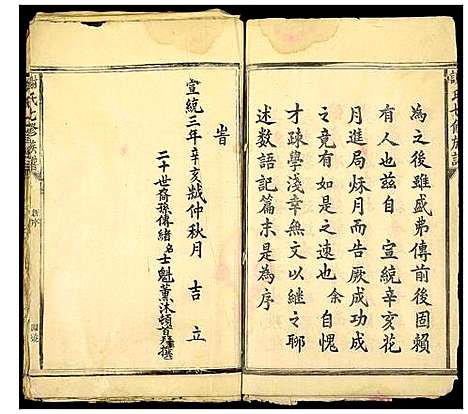 謝氏七修族譜
為之後雖盛弟傳前後固賴
有人也茲自 宣統辛亥花
月進局秌月而告厥成功成
之竟有如是之速也 余自愧
才疎學淺幸無文以繼之聊
述数語記篇末是為序
旹
宣統三年辛亥歲仲秋月 吉 立
二十世裔孫傳緒名士魁薰沐頓首拜撰
謝氏七修族譜